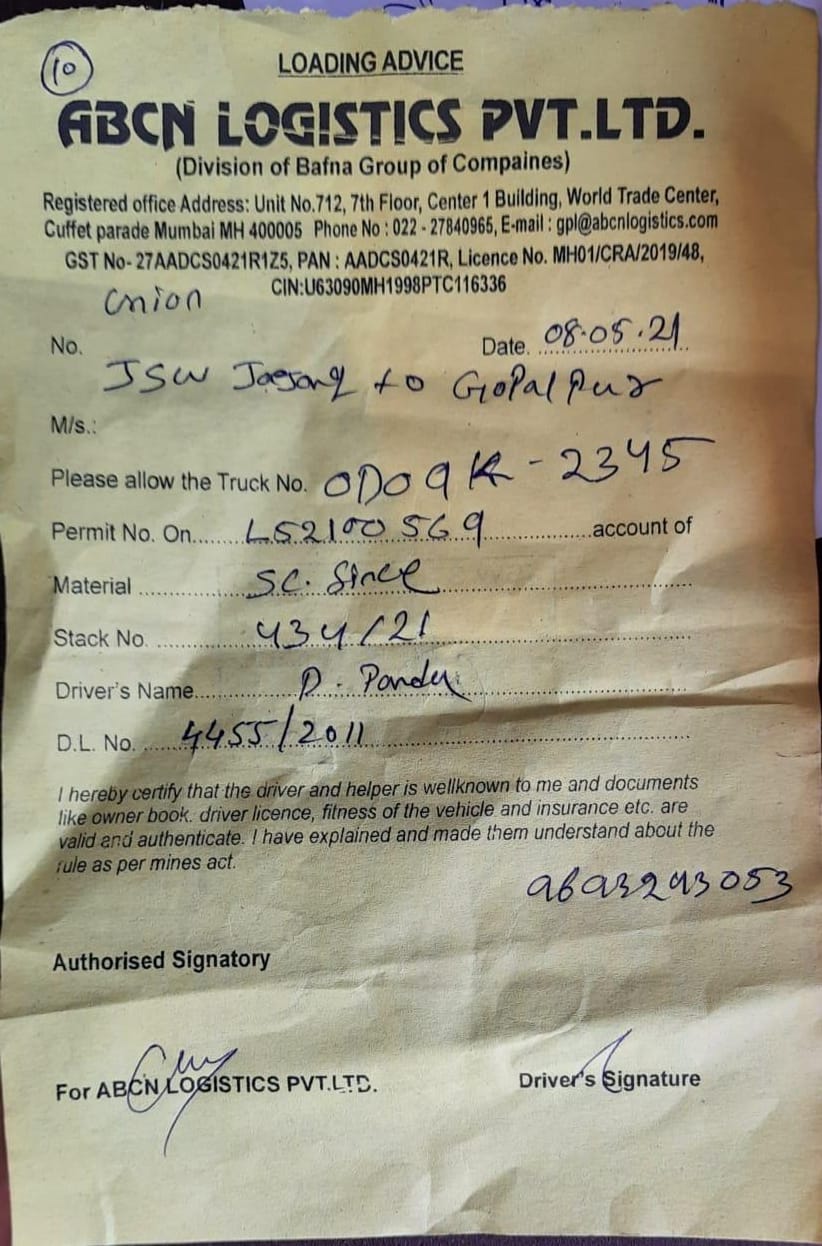 10
LOADING ADVICE
ABCN LOGISTICS PVT.LTD.
(Division of Bafna Group of Compaines)
Registered office Address: Unit No.712, 7th Floor, Center 1 Building, World Trade Center,
Cuffet parade Mumbai MH 400005 Phone No : 022 - 27840965, E-mail : gpl@abcnlogistics.com
GST No- 27AADCS0421R1Z5, PAN : AADCS0421R, Licence No. MH01/CRA/2019/48,
CIN:U63090MH1998PTC116336
Union
No. Date. 08.05.21
JSW to GoPalPur
M/s.:
Please allow the Truck No. OD09K-2345
Permit No. On....... L52100569 ..............account of
Material ............ S.C.
Stack No. ........... 434/21
Driver's Name............. D. Pandey
D.L. No. ..... 4455/2011
I hereby certify that the driver and helper is wellknown to me and documents
like owner book. driver licence, fitness of the vehicle and insurance etc. are
valid and authenticate. I have explained and made them understand about the
rule as per mines act.
9693293053
Authorised Signatory
For ABCN LOGISTICS PVT.LTD. Driver's Signature